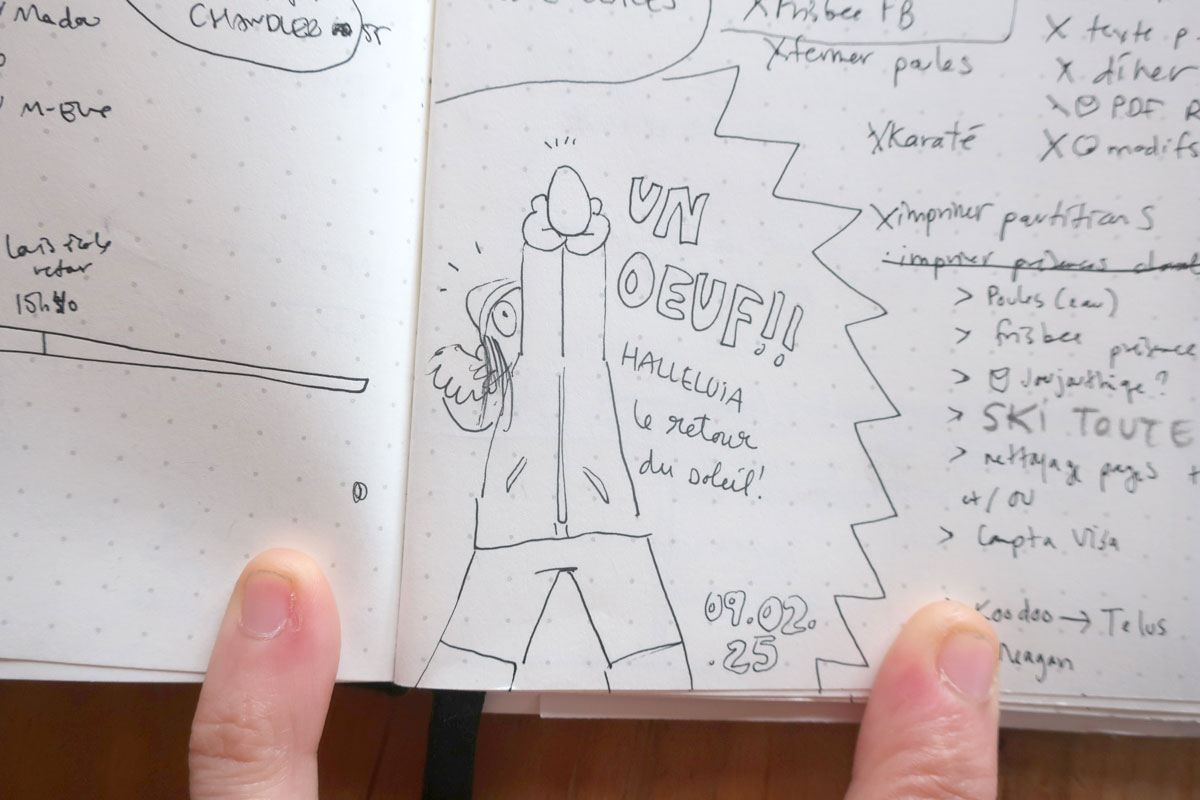 Mada
CHANDLER
M-Ève
retar
15h40
X frisbee FB
X fermer poules
X Karaté
X texte p
X dîner
PDF R
X modifs
UN
OEUF!!
HALLELUIA
le retour
du soleil!
09.02.
.25
X imprimer partitions
imprimer présences
> Poules (eau)
> frisbee présence
>
> SKI TOUTE
> nettoyage pages +
et/ou
> Compta Visa
Koodoo → Telus
Reagan